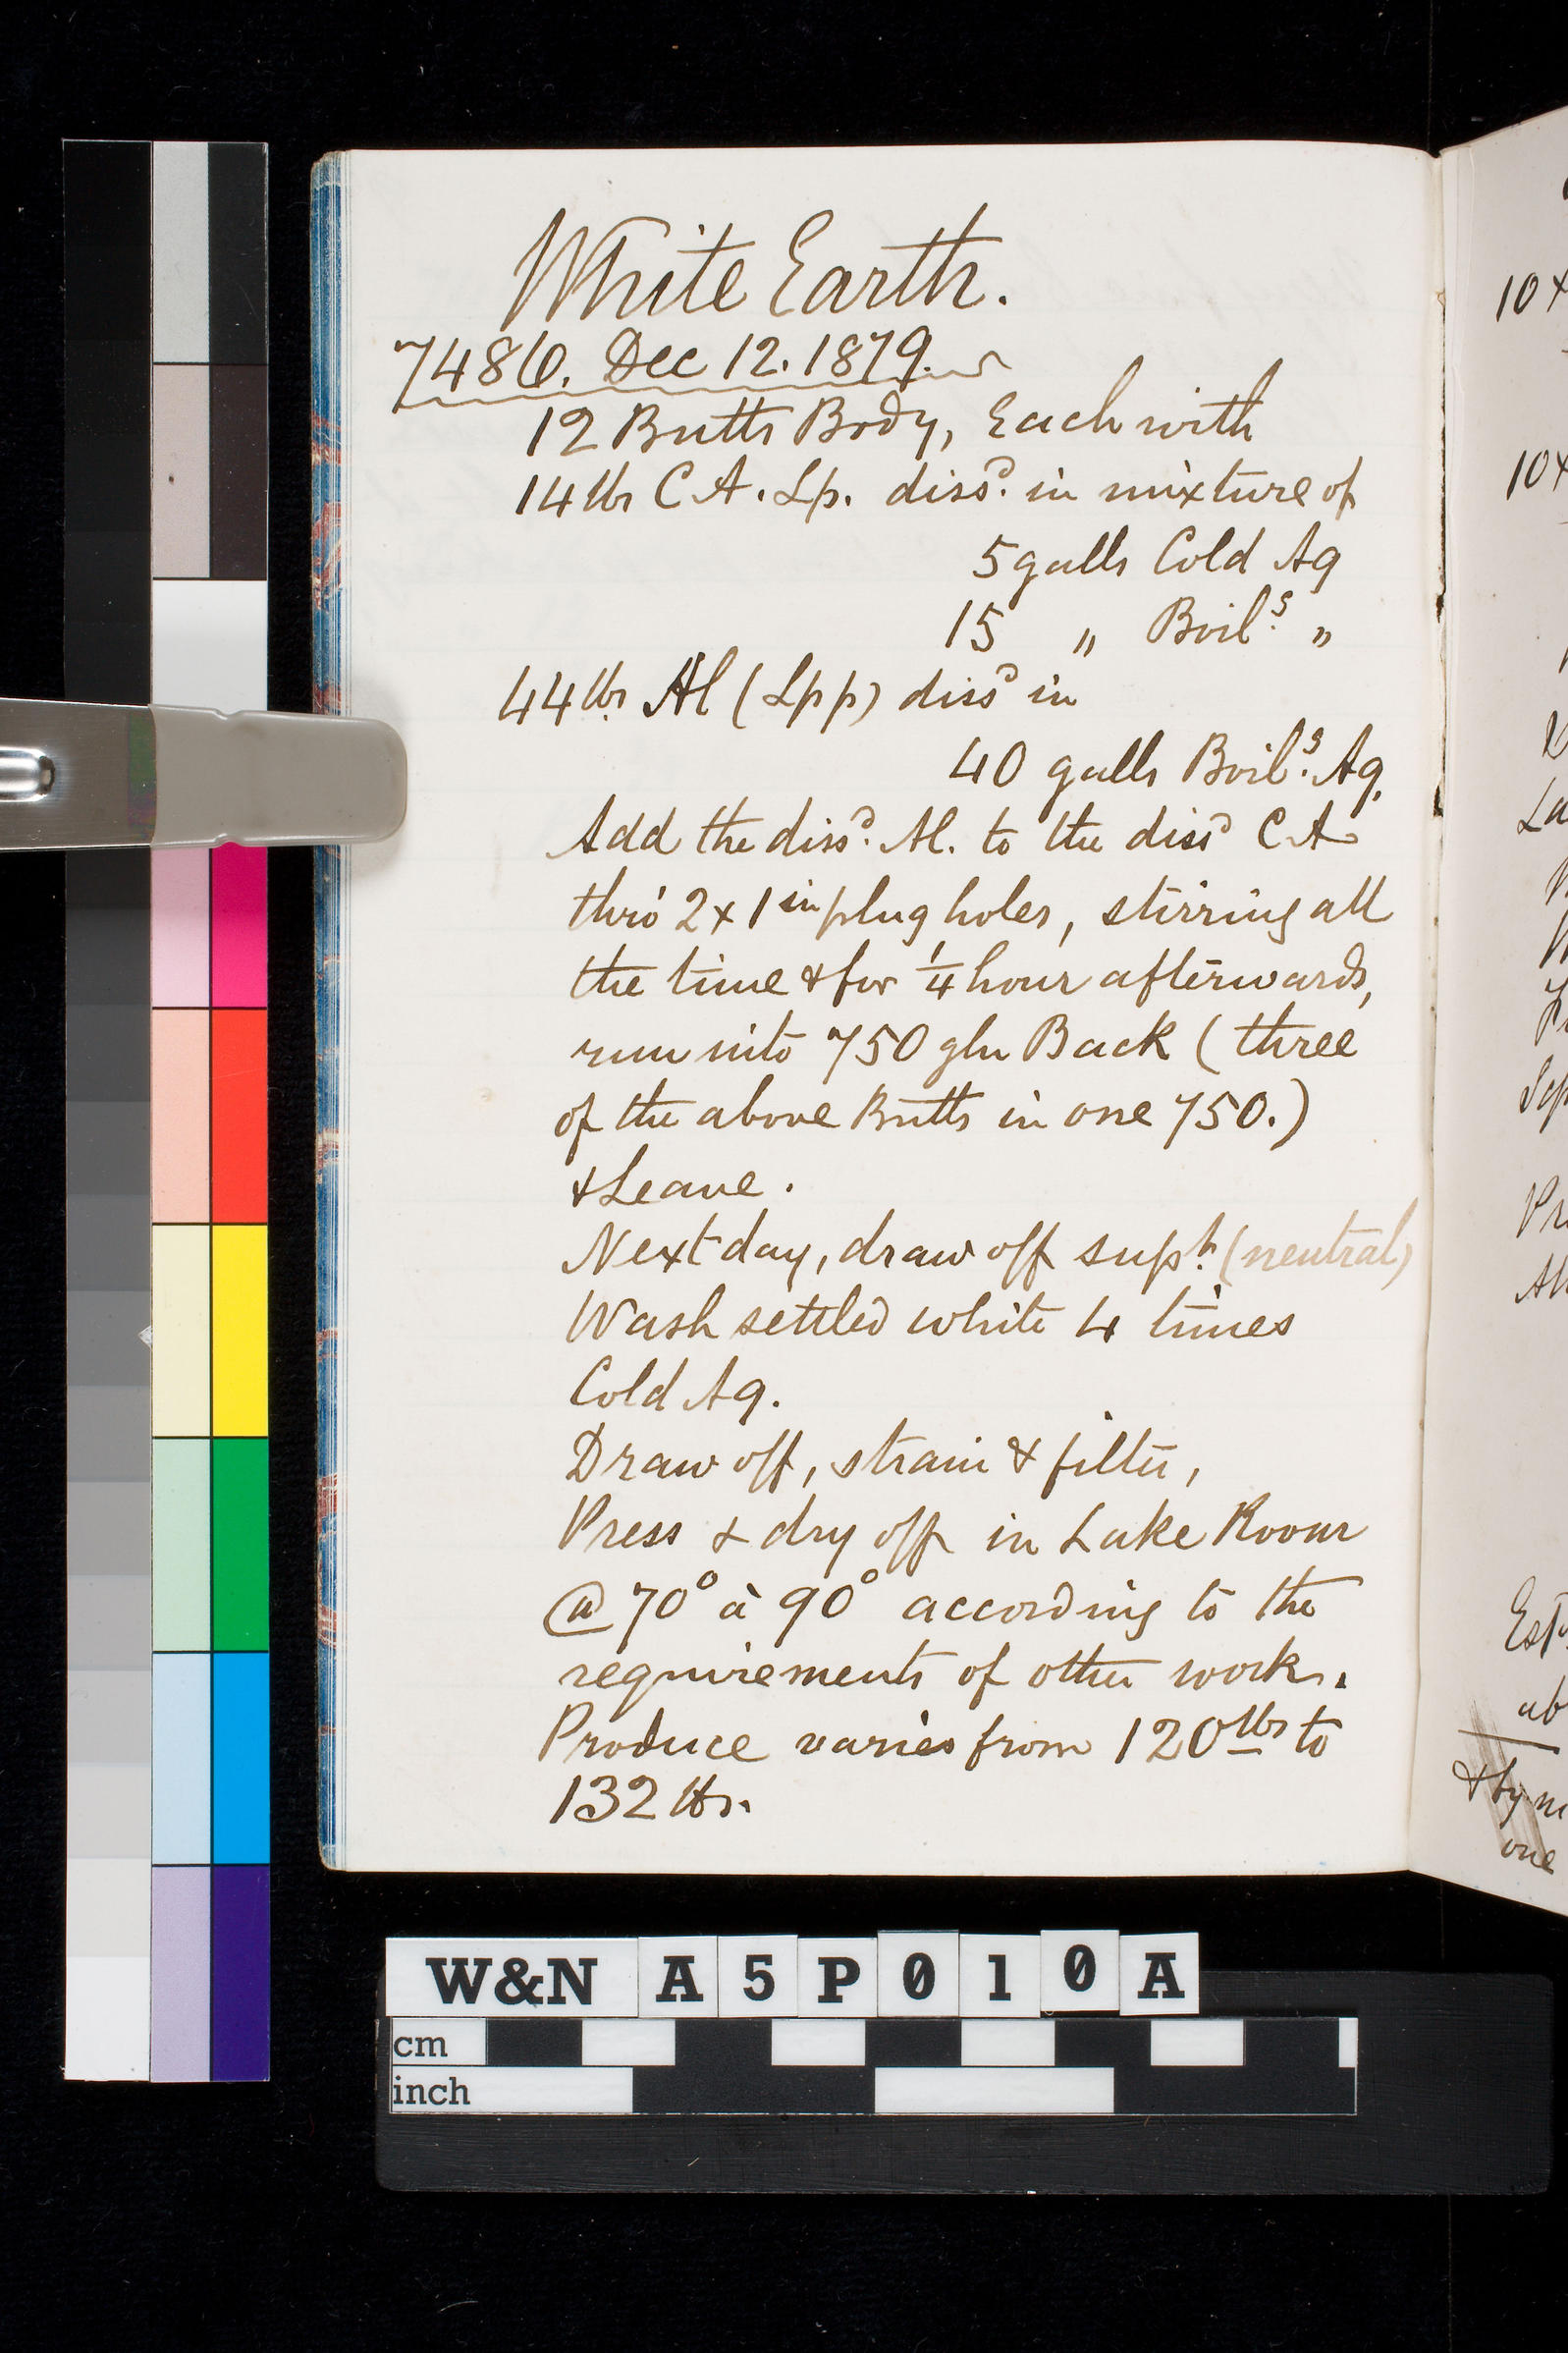 White Earth.
7486. Dec 12. 1879.
12 Butts Body, Each with
14 lbs C A. Lp. dissd. in mixture of
5 galls Cold Aq
15 „ Boilg. „
44 lbs Al (Lpp) dissd in
40 galls Boilg. Aq.
Add the dissd. Al. to the dissd C A
thro' 2 x 1 in plug holes, stirring all
the time & for 1/4 hour afterwards,
run into 750 gln Back (three
of the above Butts in one 750.)
& Leave.
Next day, draw off supt. (neutral)
Wash settled white 4 times
Cold Aq.
Draw off, strain & filter,
Press & dry off in Lake Room
@ 70° à 90° according to the
requirements of other work.
Produce varies from 120 lbs to
132 lbs.
10 x
10 x
La
Sep
Pr
Est
ab
& by m
one
W&N A5P010A
cm
inch